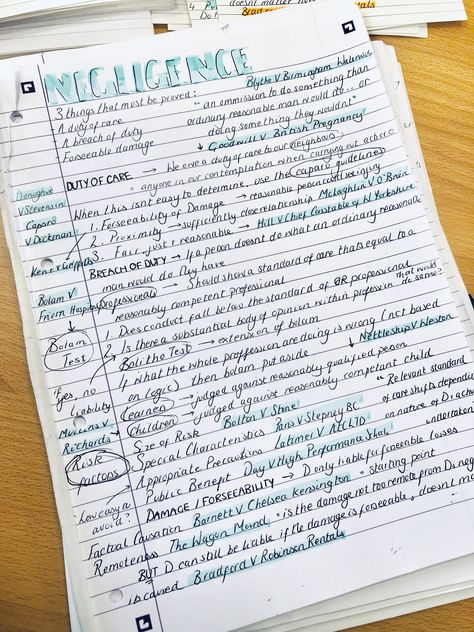 doesn't matter how
Brad
NEGLIGENCE
Blythe V Birmingham Waterwks
3 things that must be proved:
"an ommission to do something than
A duty of care
ordinary reasonable man would do... or
A breach of duty
doing something they wouldn't"
Forseeable damage
↓ Goodwill V British Pregnancy
DUTY OF CARE → We owe a duty of care to our neighbours
= anyone in our contemplation when carrying out act or o
Donoghue V Stevenson
When this isnt easy to determine, use the caparo guidelines
Caparo V Dickman
1. Forseeability of Damage → reasonable person and see injury
Mclaghlin V O'Brien
2. Proximity → sufficiently close relationship
Hill V Chief Constable of N Yorkshire
3. Fair, just & reasonable →
Kent V Griffiths
BREACH OF DUTY → If a person doesnt do what an ordinary reasonable
man would do / they have
Professionals → Should show a standard of care thats equal to a
Bolam V Friern Hospital
reasonably competent professional
1 Does conduct fall below the standard of OR professional
Bolam Test
2 Is there a substantial body of opinion within profession that would do same?
Bolitho Test → extension of bolam
If yes, no liability
↳ What the whole proffession are doing is wrong (not based
on logic) then bolam put aside
Nettleship V Weston
Mullins V Richards
Learner → judged against reasonably qualified person
Children → judged against reasonably competent child
Risk factors
Size of Risk Bolton V Stone
"Relevant standard
Special Characteristics Paris V Stepney BC
of care shifts dependin
Appropriate Precautions Latimer V AEC LTD
on nature of D's activ
How easy to avoid?
Public Benefit Day V High Performance Sports
undertaken
DAMAGE / FORSEEABILITY → D only liable for forseeable losses
Factual Causation Barnett V Chelsea Kensington = starting point
Remoteness The Wagon Mound = is the damage not too remote from D's neg
BUT D can still be liable if the damage is forseeable, doesnt ma
is caused Bradford V Robinson Rentals